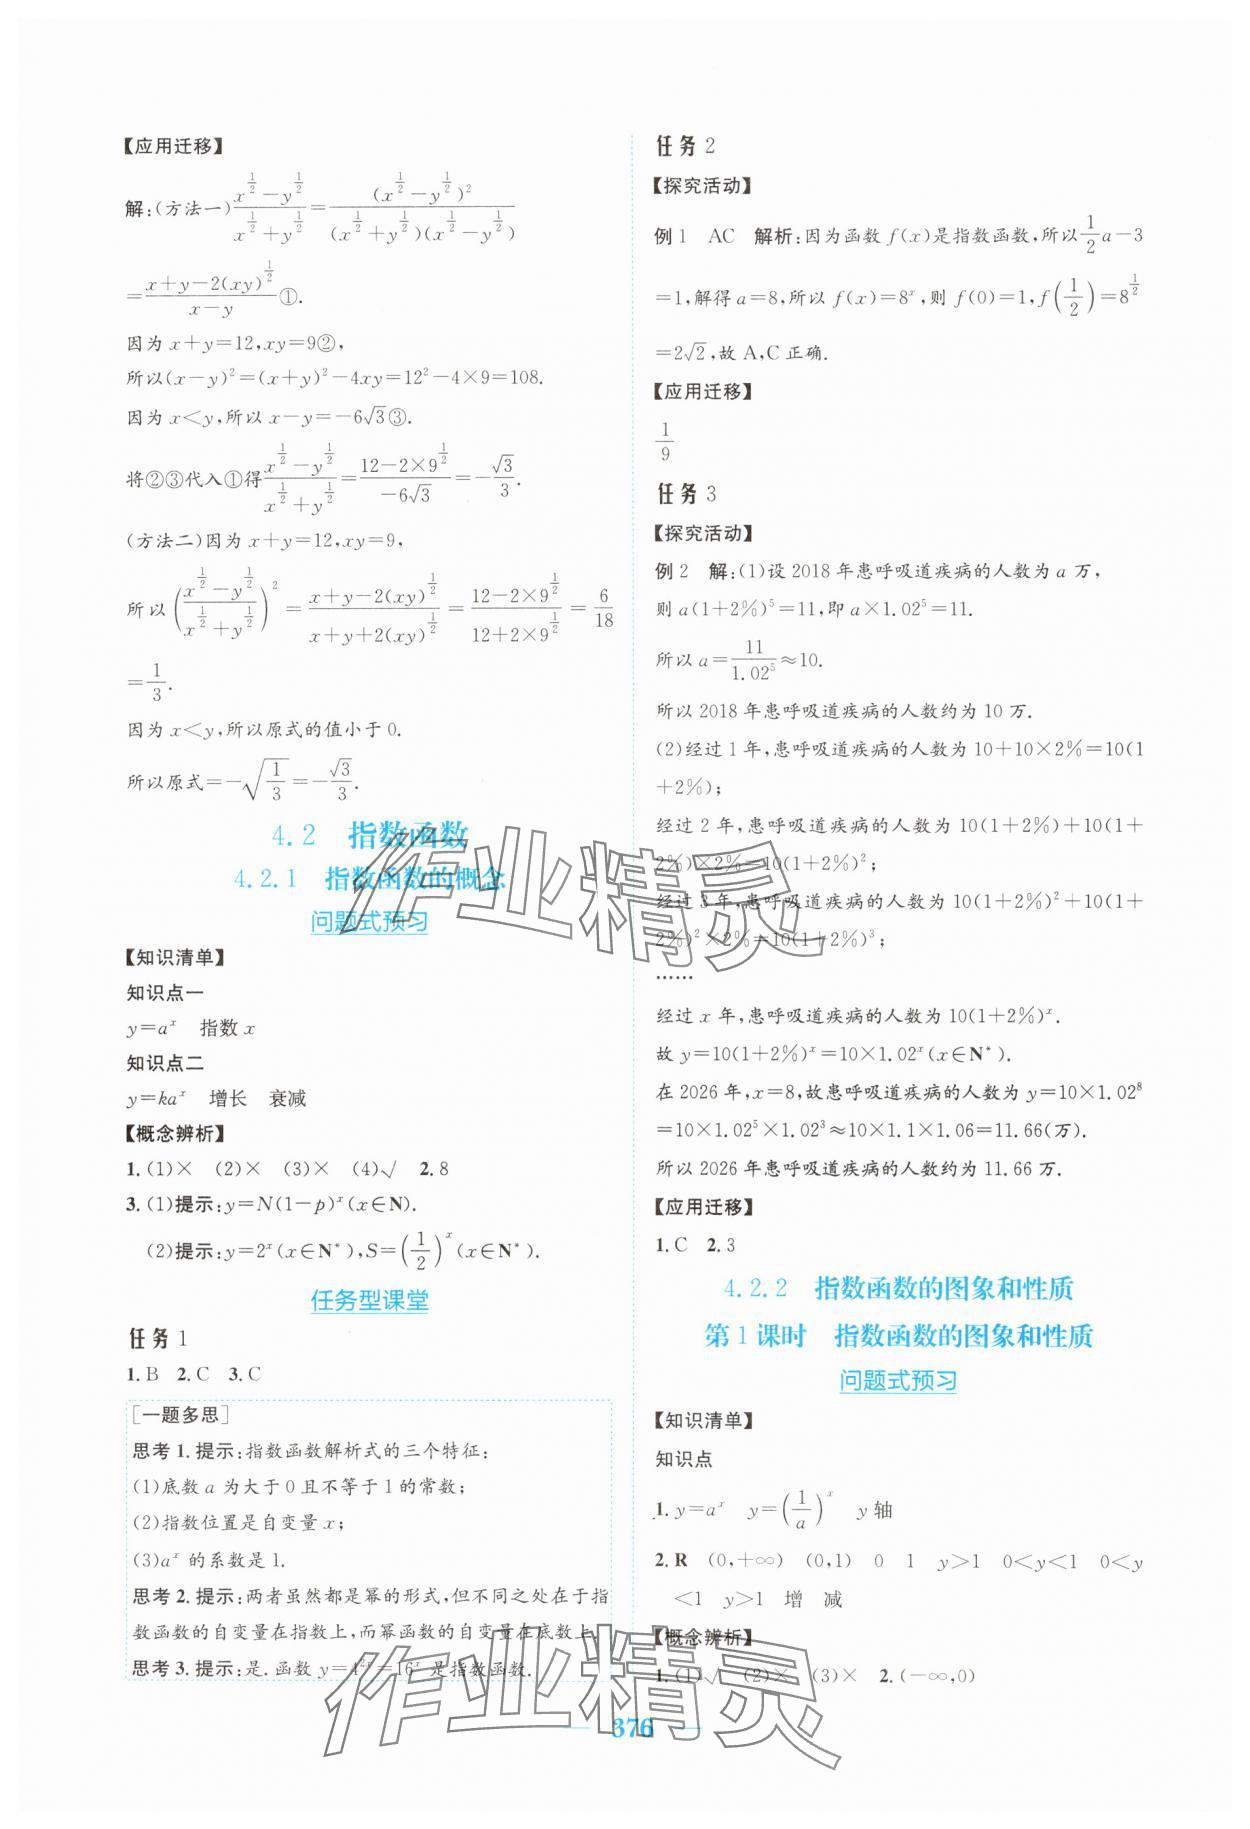 【应用迁移】
解:(方法一)$\frac{x^{\frac{1}{2}}-y^{\frac{1}{2}}}{x^{\frac{1}{2}}+y^{\frac{1}{2}}}=\frac{(x^{\frac{1}{2}}-y^{\frac{1}{2}})^2}{(x^{\frac{1}{2}}+y^{\frac{1}{2}})(x^{\frac{1}{2}}-y^{\frac{1}{2}})}$
$=\frac{x+y-2(xy)^{\frac{1}{2}}}{x-y}$①.
因为 x+y=12,xy=9②,
所以(x-y)²=(x+y)²-4xy=12²-4×9=108.
因为 x<y,所以 x-y=-6√3③.
将②③代入①得$\frac{x^{\frac{1}{2}}-y^{\frac{1}{2}}}{x^{\frac{1}{2}}+y^{\frac{1}{2}}}=\frac{12-2×9^{\frac{1}{2}}}{-6\sqrt{3}}=-\frac{\sqrt{3}}{3}$.
(方法二)因为 x+y=12,xy=9,
所以$\left(\frac{x^{\frac{1}{2}}-y^{\frac{1}{2}}}{x^{\frac{1}{2}}+y^{\frac{1}{2}}}\right)^2=\frac{x+y-2(xy)^{\frac{1}{2}}}{x+y+2(xy)^{\frac{1}{2}}}=\frac{12-2×9^{\frac{1}{2}}}{12+2×9^{\frac{1}{2}}}=\frac{6}{18}$
$=\frac{1}{3}$.
因为 x<y,所以原式的值小于 0.
所以原式$=-\sqrt{\frac{1}{3}}=-\frac{\sqrt{3}}{3}$.
4.2 指数函数
4.2.1 指数函数的概念
问题式预习
【知识清单】
知识点一
y=aˣ 指数 x
知识点二
y=kaˣ 增长 衰减
【概念辨析】
1.(1)× (2)× (3)× (4)√ 2.8
3.(1)提示:y=N(1-p)ˣ(x∈N).
(2)提示:y=2ˣ(x∈N*),S=$\left(\frac{1}{2}\right)^x$(x∈N*).
任务型课堂
任务 1
1.B 2.C 3.C
[一题多思]
思考 1.提示:指数函数解析式的三个特征:
(1)底数 a 为大于 0 且不等于 1 的常数;
(2)指数位置是自变量 x;
(3)aˣ 的系数是 1.
思考 2.提示:两者虽然都是幂的形式,但不同之处在于指
数函数的自变量在指数上,而幂函数的自变量在底数上.
思考 3.提示:是.函数 y=4²ˣ=16ˣ 是指数函数.
任务 2
【探究活动】
例 1 AC 解析:因为函数 f(x)是指数函数,所以$\frac{1}{2}$a-3
=1,解得 a=8,所以 f(x)=8ˣ,则 f(0)=1,$f\left(\frac{1}{2}\right)=8^{\frac{1}{2}}$
=2√2,故 A,C 正确.
【应用迁移】
$\frac{1}{9}$
任务 3
【探究活动】
例 2 解:(1)设 2018 年患呼吸道疾病的人数为 a 万,
则 a(1+2%)⁵=11,即 a×1.02⁵=11.
所以 a=$\frac{11}{1.02^5}$≈10.
所以 2018 年患呼吸道疾病的人数约为 10 万.
(2)经过 1 年,患呼吸道疾病的人数为 10+10×2%=10(1
+2%);
经过 2 年,患呼吸道疾病的人数为 10(1+2%)+10(1+
2%)×2%=10(1+2%)²;
经过 3 年,患呼吸道疾病的人数为 10(1+2%)²+10(1+
2%)²×2%=10(1+2%)³;
……
经过 x 年,患呼吸道疾病的人数为 10(1+2%)ˣ.
故 y=10(1+2%)ˣ=10×1.02ˣ(x∈N*).
在 2026 年,x=8,故患呼吸道疾病的人数为 y=10×1.02⁸
=10×1.02⁵×1.02³≈10×1.1×1.06=11.66(万).
所以 2026 年患呼吸道疾病的人数约为 11.66 万.
【应用迁移】
1.C 2.3
4.2.2 指数函数的图象和性质
第 1 课时 指数函数的图象和性质
问题式预习
【知识清单】
知识点
1.y=aˣ y=$\left(\frac{1}{a}\right)^x$ y 轴
2.R (0,+∞) (0,1) 0 1 y>1 0<y<1 0<y
<1 y>1 增 减
【概念辨析】
1.(1)√ (2)× (3)× 2.(-∞,0)
376
作业精灵
作业精灵